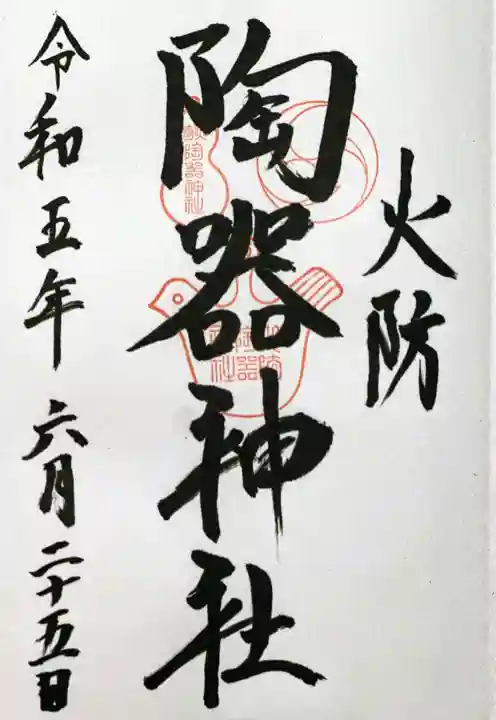 火防
陶器神社
令和五年 六月二十五日
陶器神社
陶器
神社